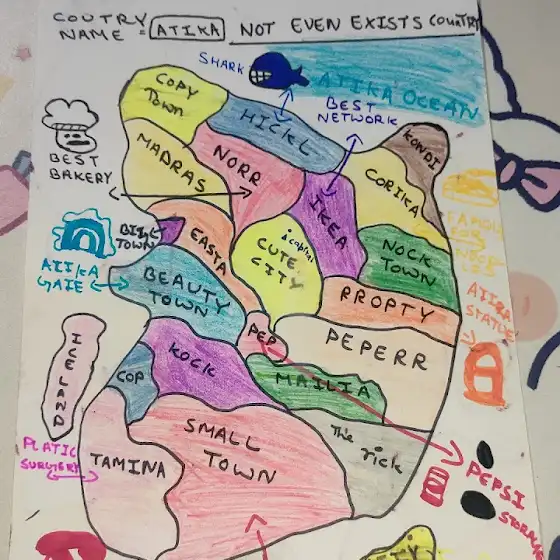 COUTRY
NAME = ATIKA NOT EVEN EXISTS COUNTRY
SHARK
ATIKA OCEAN
COPY
TOWN
HICKL
BEST
NETWORK
KONDI
BEST
BAKERY
MADRAS
NORR
CORIKA
IKEA
EASTA
CUTE
CITY
capital
NOCK
TOWN
TOWN
ATIKA
GATE
BEAUTY
TOWN
RROPTY
PEP
PEPERR
ICELAND
KOCK
COP
MAILIA
SMALL
TOWN
The
rick
PLATIC
SURGERY
TAMINA
PEPSI